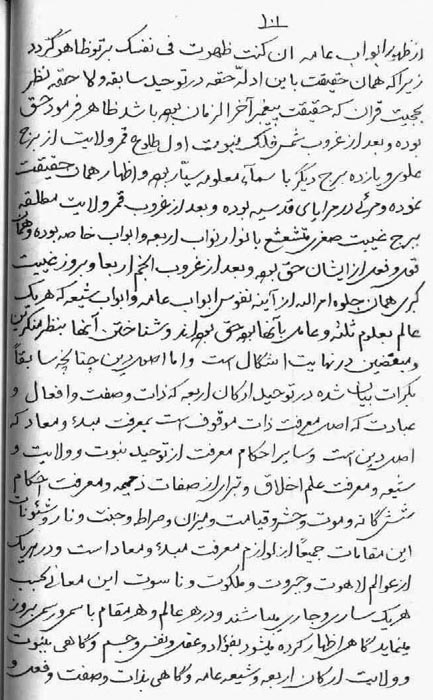 ١٠١
از ظهور ابواب عامه ان کنت ظهرت فی نفسک بر تو ظاهر گردد
زیرا که همان حقیقت با این ادلّه حقه در توحید سابقه و لاحقه نظر
بحجیت قران که حقیقت پیغمبر آخر الزمان بوده باشد ظاهر فرمود حق
بوده و بعد از غروب شمس فلک نبوت اول طلوع قمر ولایت از برج
علوی و یازده برج دیگر با سماء معلومه سیّار بوده و اظهار همان حقیقت
نموده و مرئی در مرایای قدسیه بوده و بعد از غروب قمر ولایت مطلقه
ببرج غیبت صغری متشعشع بانوار نواب اربعه و ابواب خاصه بوده و همان
قول و فعل از ایشان حق بوده و بعد از غروب انجم اربعا و بروز غیبت
کبری همان جلوه امر الله از آینه نفوس ابواب عامه و ابواب شیعه که هر یک
عالم بعلوم ثلثه و عامل بآنها بوده حق بوده‌اند و شناختن آنها بنظر منکرین
و مبغضین در نهایت اشکال است و اما اصول دین چنانچه سابقاً
بکرات بیان شده در توحید ارکان اربعه که ذات و صفت و افعال و
عبادت که اصل معرفت ذات موقوف است بمعرفت مبدء و معاد که
اصل دین است و سایر احکام معرفت از توحید نبوت و ولایت و
شیعه و معرفت علم اخلاق و تبرای از صفات ذمیمه و معرفت احکام
شش گانه و موت و حشر و قیامت و میزان و صراط و جنت و نار و شئونات
این مقامات جمیعاً از لوازم معرفت مبدء و معاد است و در هر یک
از عوالم لاهوت و جبروت و ملکوت و ناسوت این معانی بحسب
هر یک ساری و جاری میباشند و در هر عالم و هر مقام باسمی و رسمی بروز
مینماید گاهی اظهار کرده میشود بفؤاد و عقل و نفس و جسم و گاهی بنبوت
و ولایت ارکان اربعه و شیعه عامه و گاهی بذات و صفت و فعل و